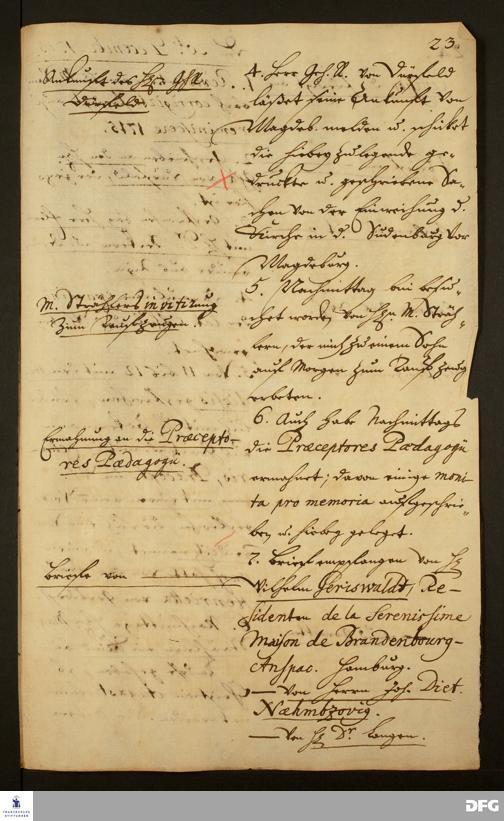 23.
Ankunfft des Hrn. Geh. R.
Dürfeld.
4. Herr Geh. R. von Dürfeld
läßet seine Ankunfft von
Magdeb. melden u. schicket
die hiebey zulegende ge-
druckte u. geschriebene Sa-
chen von der Einweihung d.
Kirche in d. Sudenburg vor
Magdeburg.
M. Strählers invitirung
zum Tauffzeugen.
5. Nachmittag bin besu-
chet worden von Hrn M. Sträh-
lern, der mich zu einem Sohn
auf Morgen zum Tauffzeug
erbeten.
Ermahnung an die Præcepto-
res Pædagogii.
6. Auch habe Nachmittags
die Præceptores Pædagogii
ermahnet, davon einige moni-
ta pro memoria aufgeschrie-
ben u. hiebey geleget.
Briefe von
7. Briefe empfangen von H.
Wilhelm Geriswaldt, Re-
sidenten de la Serenissime
Maison de Brandenbourg-
Anspac. Hamburg.
— von Herrn Joh. Diet.
— von H. Dr. Langen.
FRANCKESCHE
STIFTUNGEN
DFG